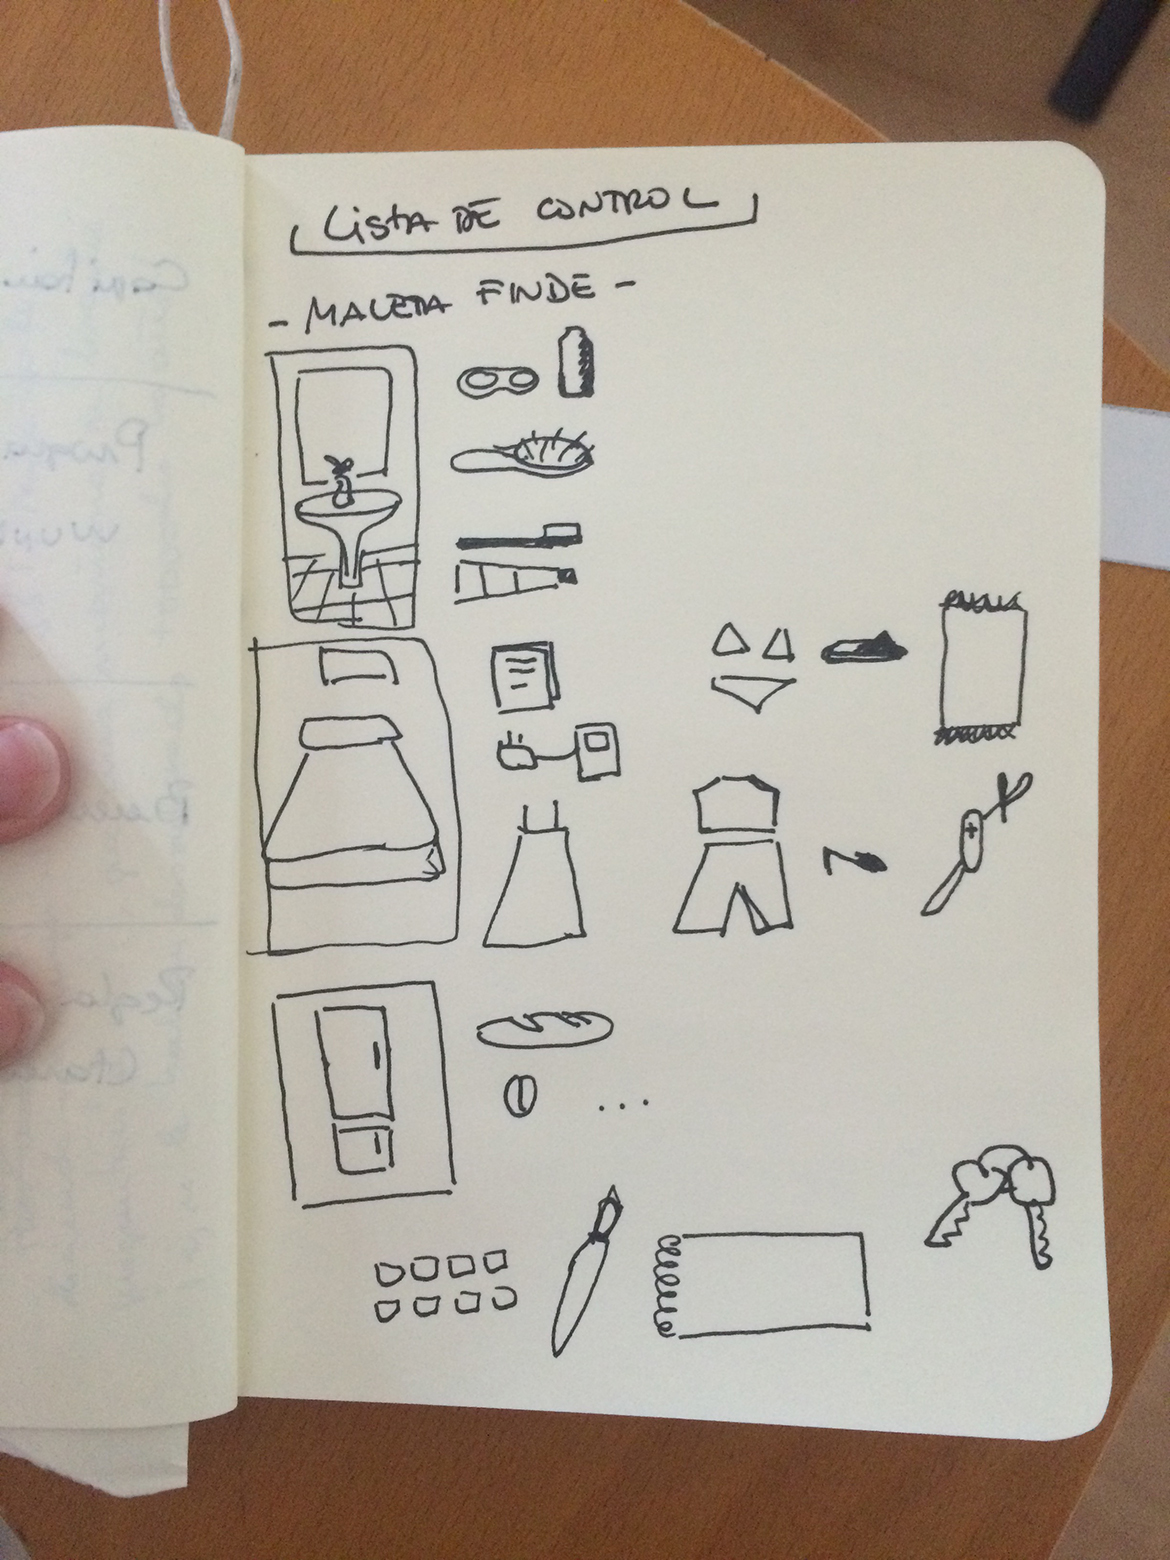 LISTA DE CONTROL
- MALETA FINDE -